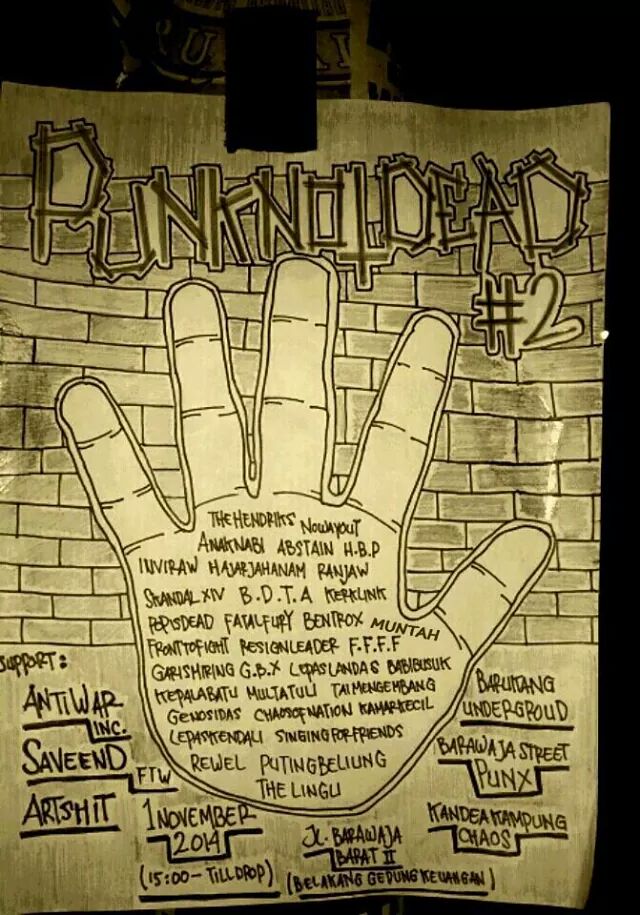 PUNKNOTDEAD
#2
THEHENDRIKS NOWAYOUT
ANAKNABI ABSTAIN H.B.P
INVIRAW HAJARJAHANAM RANJAW
SKANDAL XIV B.D.T.A KERKLINK
POPISDEAD FATALFURY BENTROX MUNTAH
FRONTTOFIGHT RESIGNLEADER F.F.F.F
GARISHIRING G.B.X LEPASLANDAS BABIBUSUK
KEPALABATU MULTATULI TAIMENGEMBANG
GENOSIDAS CHAOSOFNATION KAMARKECIL
LEPASKENDALI SINGINGFORFRIENDS
REWEL PUTINGBELIUNG
THE LINGU
SUPPORT:
ANTIWAR
INC.
SAVEEND
FTW
ARTSHIT
BARUKANG
UNDERGROUD
BARAWAJA STREET
PUNX
KANDEAKAMPUNG
CHAOS
1 NOVEMBER
2014
(15:00 - TILLDROP)
JL. BARAWAJA
BARAT II
(BELAKANG GEDUNG KEUANGAN)